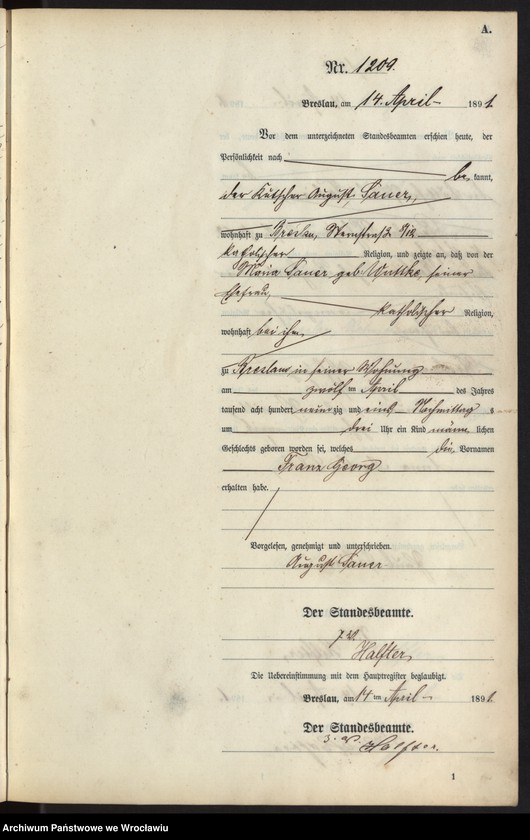 A.
Nr. 1209.
Breslau, am 14. April 1891.
Vor dem unterzeichneten Standesbeamten erschien heute, der
Persönlichkeit nach
be kannt,
der Kutscher August Sauer,
wohnhaft zu Breslau, Sternstraße
katholischer Religion, und zeigte an, daß von der
Maria Sauer geb. Wuttke, seiner
Ehefrau,
katholischer Religion,
wohnhaft bei ihm,
zu Breslau in seiner Wohnung
am zwölf ten April des Jahres
tausend acht hundert neunzig und eins Nachmittag s
um drei Uhr ein Kind männ lichen
Geschlechts geboren worden sei, welches die Vornamen
Franz Georg
erhalten habe.
Vorgelesen, genehmigt und unterschrieben.
August Sauer
Der Standesbeamte.
Halfter
Die Uebereinstimmung mit dem Hauptregister beglaubigt.
Breslau, am 14 ten April 1891.
Der Standesbeamte.
Halfter.
1
Archiwum Państwowe we Wrocławiu